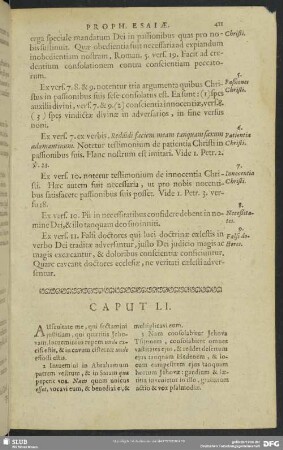 PROPH. ESAIÆ. 421
erga speciale mandatum Dei in passionibus quas pro no-
bis sustinuit. Quæ obedientia fuit necessaria ad expiandam
inobedientiam nostram, Roman. 5. vers. 19. Facit ad cre-
dentium consolationem contra conscientiam peccato-
rum.
Christi.
Ex vers. 7. 8. & 9. notentur tria argumenta quibus Chri-
stus in passionibus suis sese consolatus est. Ea sunt: (1) spes
auxilii divini, vers. 7. & 9. (2) conscientia innocentiæ, vers. 8.
(3) spes vindictæ divinæ in adversarios, in fine versus
noni.
5.
Passiones
Christi.
Ex vers. 7. ex verbis. Reddidi faciem meam tanquam saxum
adamantinum. Notetur testimonium de patientia Christi in
passionibus suis. Hanc nostrum est imitari. Vide 1. Petr. 2.
℣. 21.
6.
Patientia
Christi.
Ex vers. 10. notetur testimonium de innocentia Chri-
sti. Hæc autem fuit necessaria, ut pro nobis innocenti-
bus satisfacere passionibus suis posset. Vide 1. Petr. 3. ver-
su 18.
7.
Innocentia
Christi.
Ex vers. 10. Pii in necessitatibus considere debent in no-
mine Dei, & illo tanquam deo suo inniti.
8.
Necessita-
tes.
Ex vers. 11. Falsi doctores qui loci doctrinæ cælestis in
verbo Dei traditæ adversantur, justo Dei judicio magis ac
magis excæcantur, & doloribus conscientiæ conficiuntur.
Quare caveant doctores ecclesiæ, ne veritati cælesti adver-
sentur.
9.
Falsi do-
ctores.
CAPUT LI.
Auscultate me, qui sectamini
justitiam, qui quæritis Jeho-
vam. Intuemini in rupem unde ex-
cisi estis, & in cavum cisternæ unde
effossi estis.
2 Intuemini in Abrahamum
patrem vestrum, & in Saram quæ
peperit vos. Nam quum unicus
esset, vocavi eum, & benedixi ei, &
multiplicavi eum.
3 Nam consolabitur Jehova
Tsijonem, consolabitur omnes
vastitates ejus, & reddet desertum
ejus tanquam Hedenem, & lo-
cum campestrem ejus tanquam
hortum Jehovæ: gaudium & læ-
titia invenietur in illo, gratiarum
actio & vox psalmodiæ.
SLUB
DFG